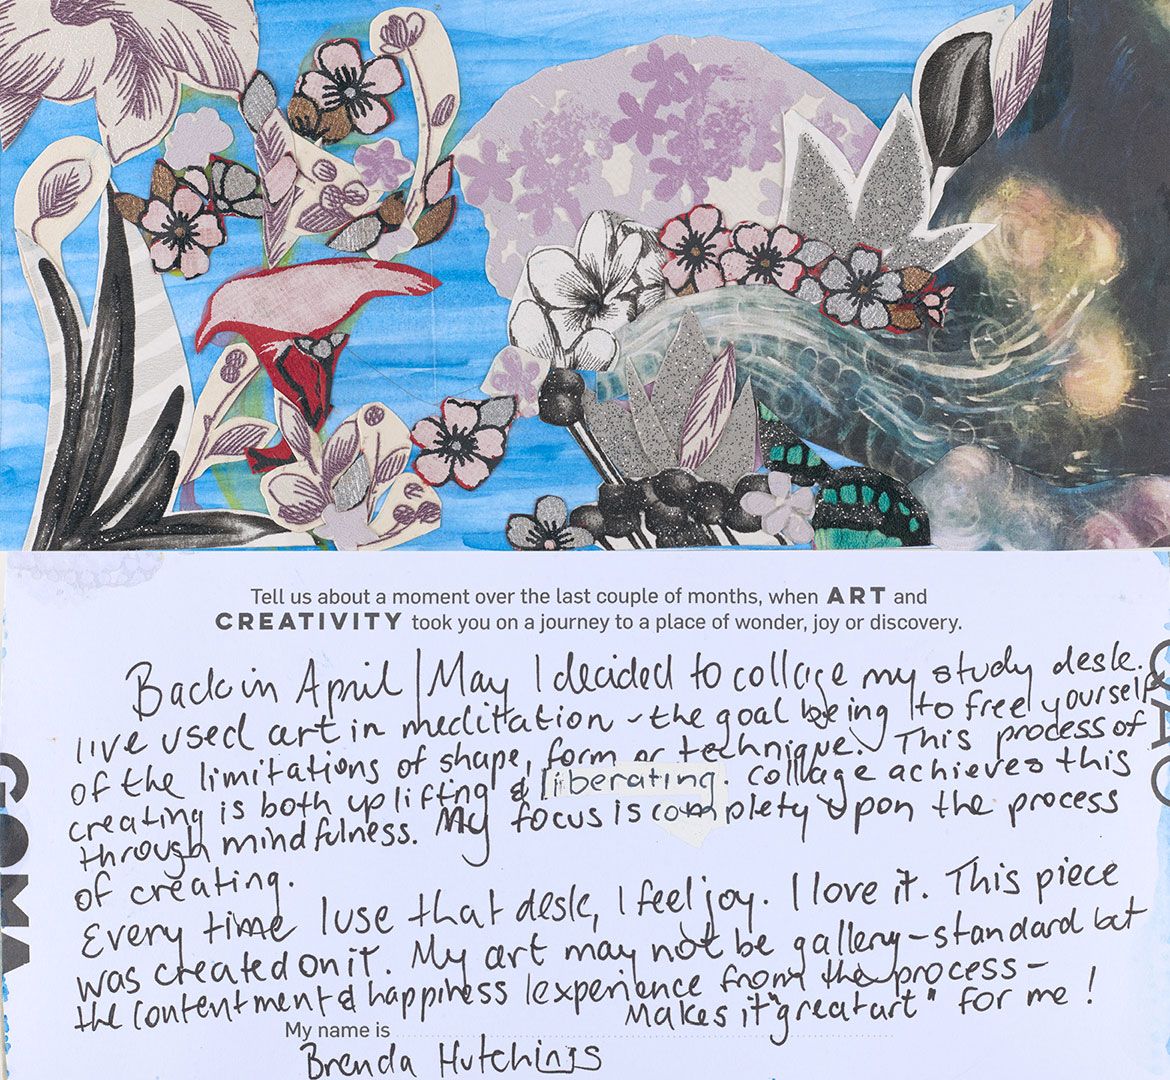 Tell us about a moment over the last couple of months, when ART and
CREATIVITY took you on a journey to a place of wonder, joy or discovery.
Back in April/May I decided to collage my study desk.
I've used art in meditation - the goal being to free yourself
of the limitations of shape, form or technique. This process of
creating is both uplifting & liberating. Collage achieves this
through mindfulness. My focus is complety upon the process
of creating.
Every time I use that desk, I feel joy. I love it. This piece
was created on it. My art may not be gallery-standard but
the contentment & happiness I experience from the process -
Makes it "great art" for me!
My name is
Brenda Hutchings
GOMA
QAG